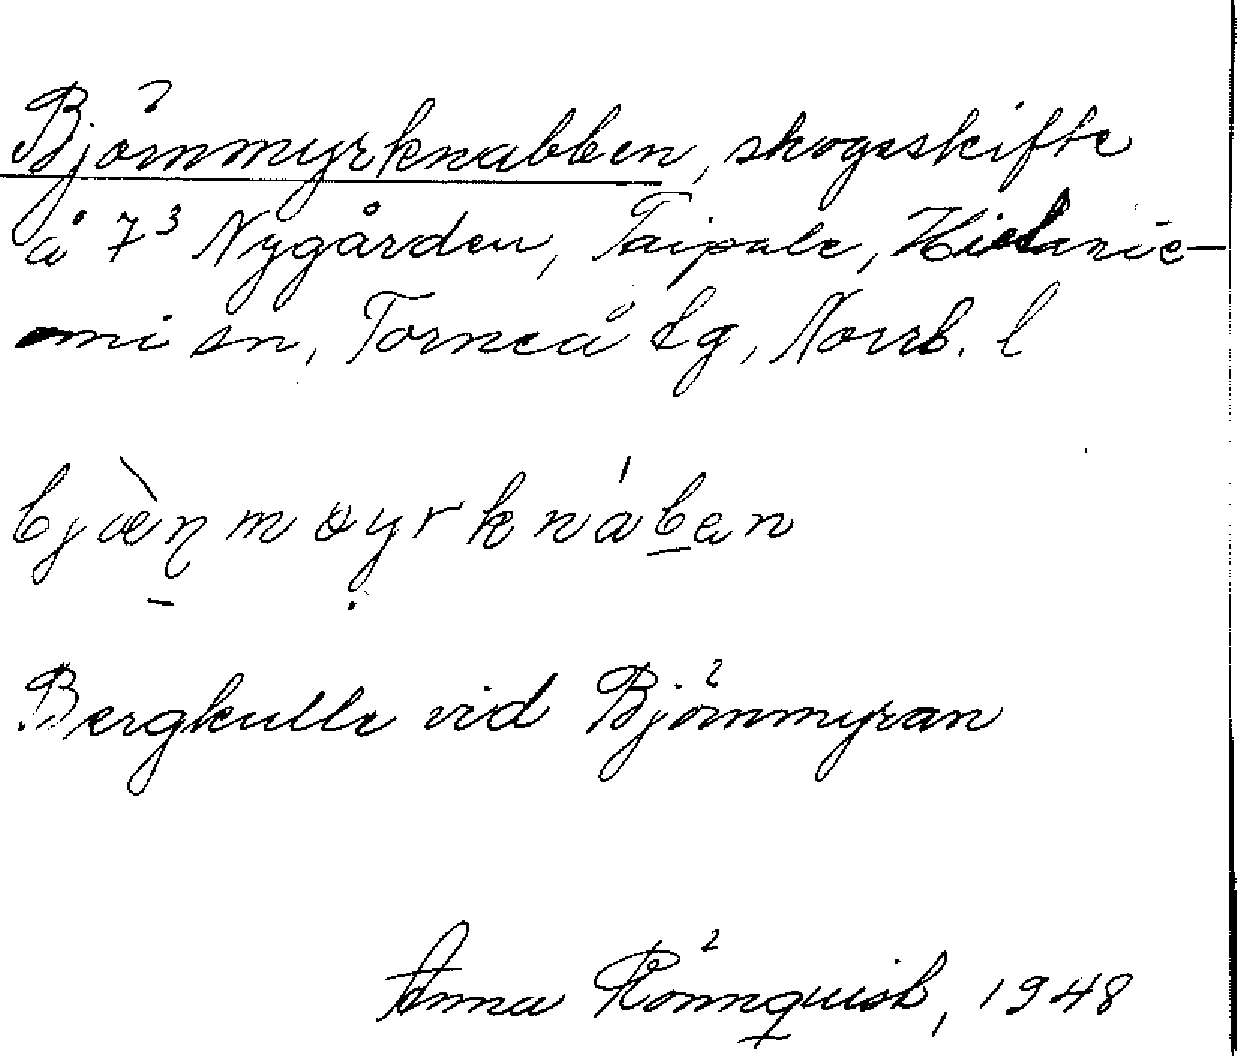 Björnmyrknabben, skogsskifte
å 7³ Nygården, Taipale, Hietanie-
mi sn, Torneå tg, Norrb. l
bjæ̀ṇmøyrknáben
Bergkulle vid Björnmyran
Anna Rönnquist, 1948